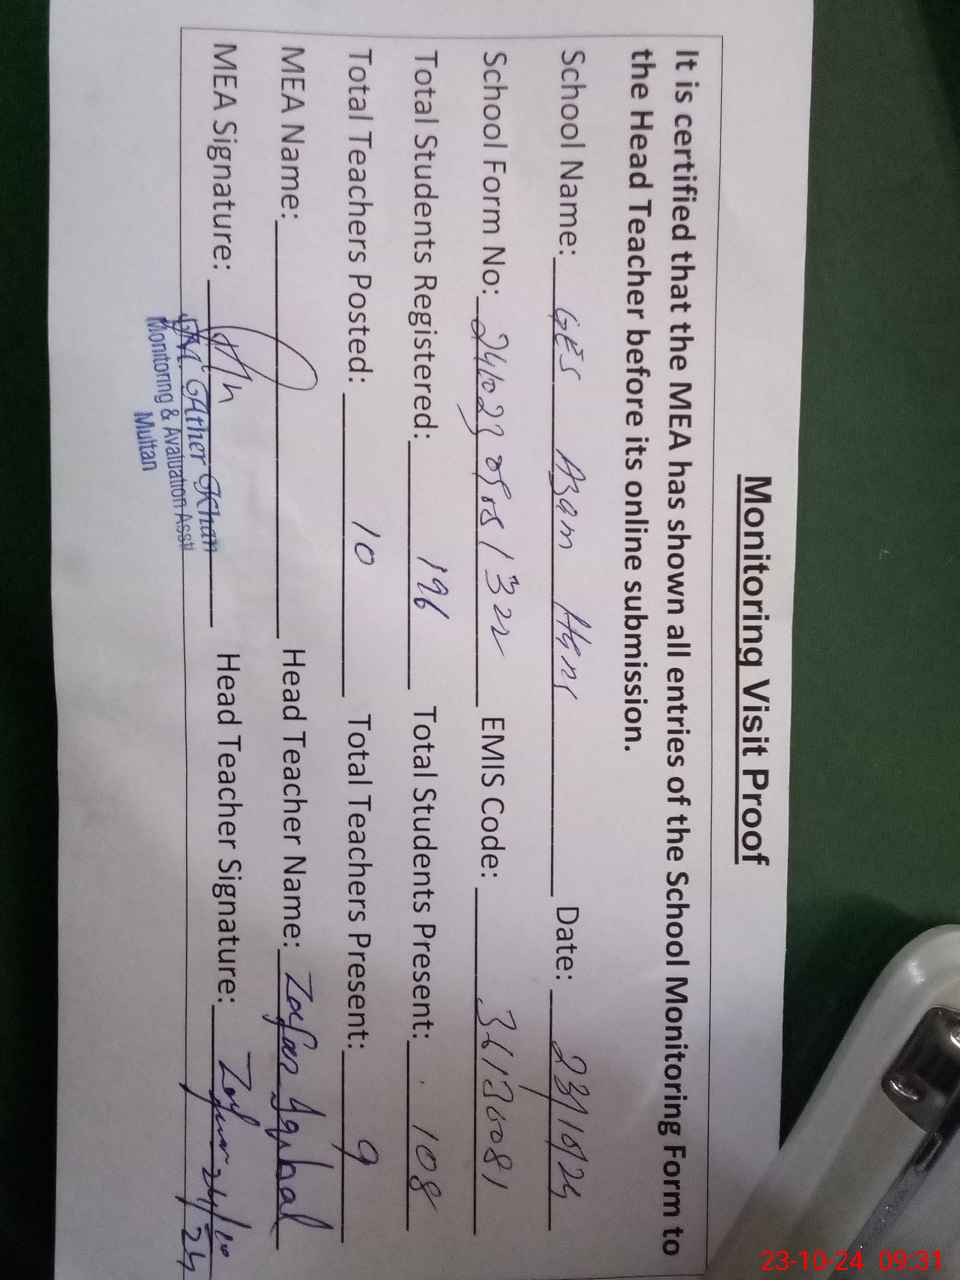 Monitoring Visit Proof
It is certified that the MEA has shown all entries of the School Monitoring Form to
the Head Teacher before its online submission.
School Name: GES Azam Date: 23/10/24
School Form No: EMIS Code:
Total Students Registered: 196 Total Students Present: 108
Total Teachers Posted: 10 Total Teachers Present: 9
MEA Name: Head Teacher Name: Zafar Iqbal
MEA Signature: Head Teacher Signature: Zafar 24/10/24
Ather Khan
Monitoring & Avaluation Asstt
Multan
23-10-24 09:31